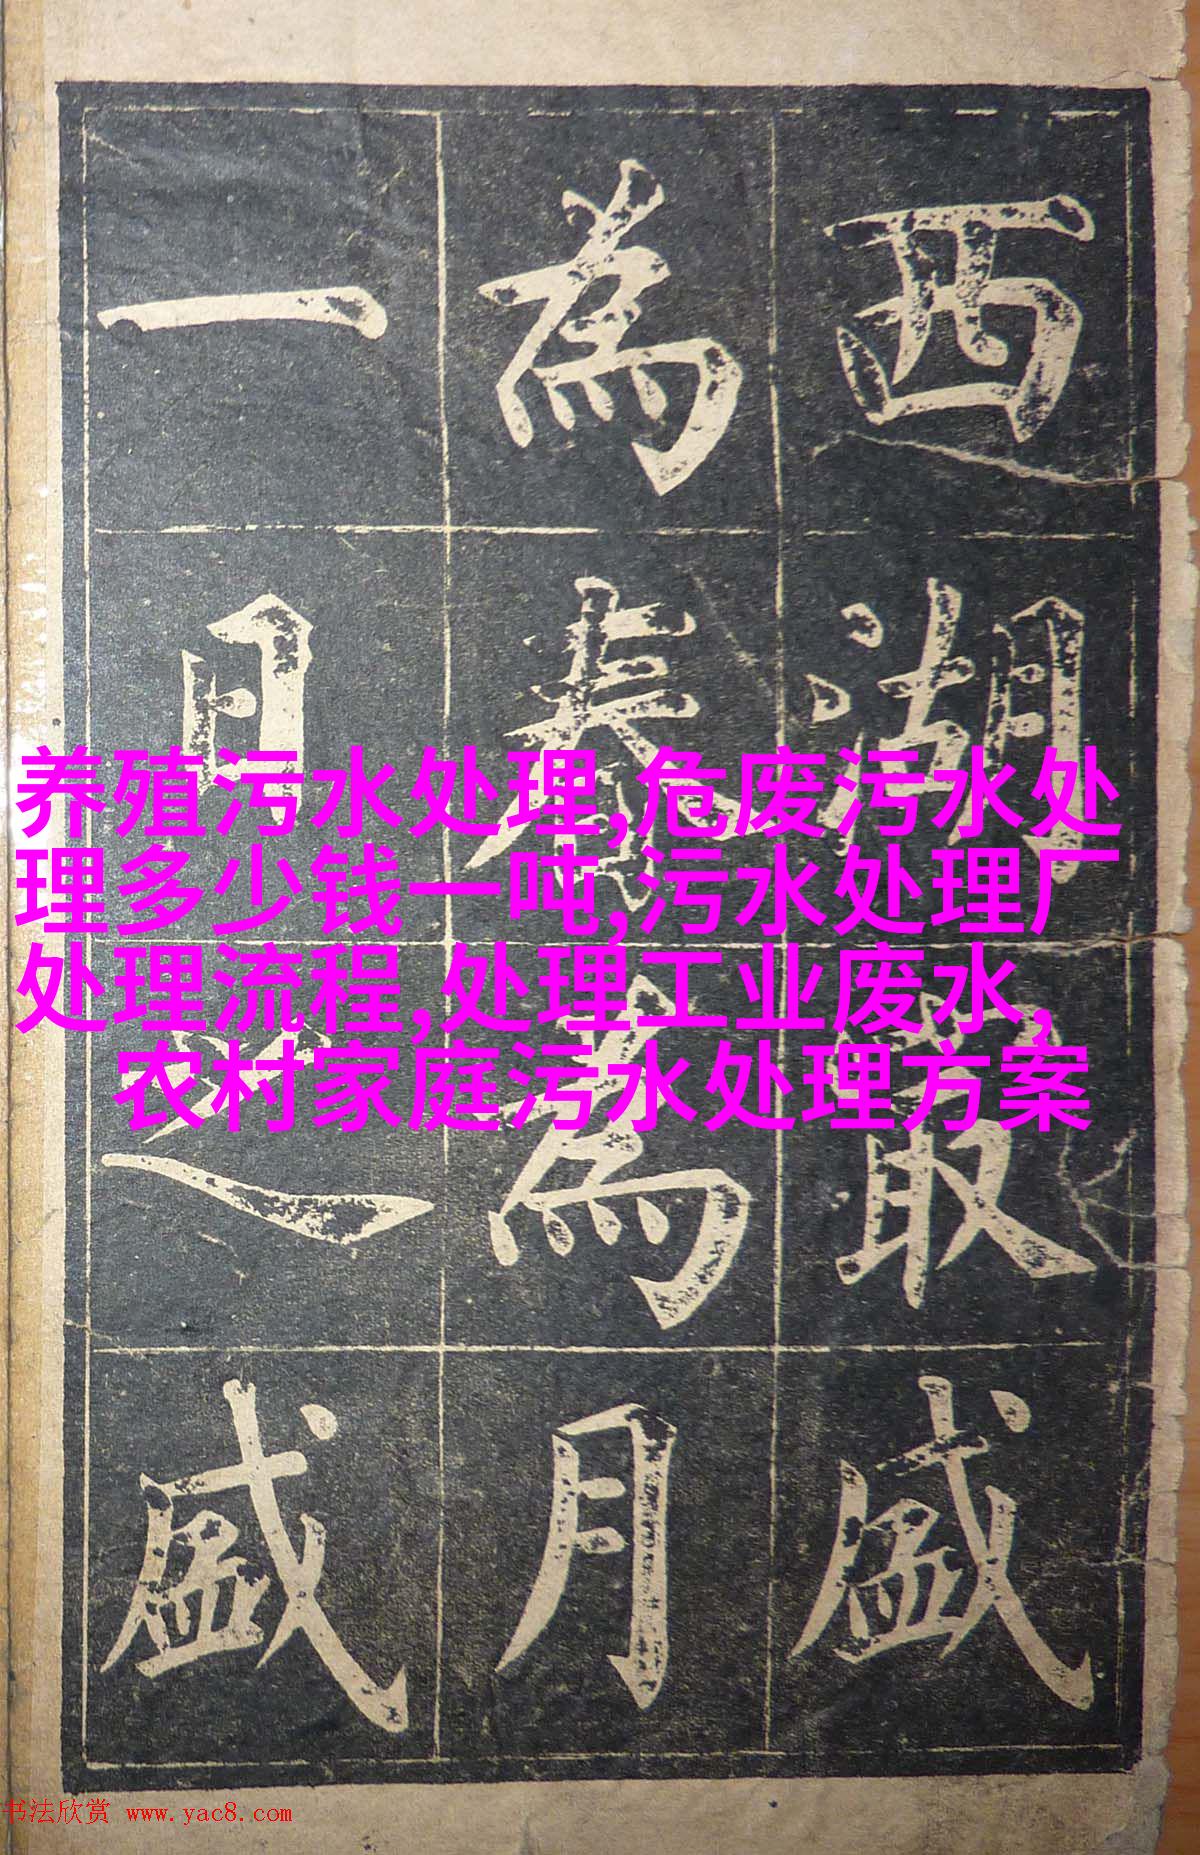 西湖最盛
為春為月
一日之盛
养殖污水处理,危废污水处
理多少钱一吨,污水处理厂
处理流程,处理工业废水,
农村家庭污水处理方案
书法欣赏 www.yac8.com